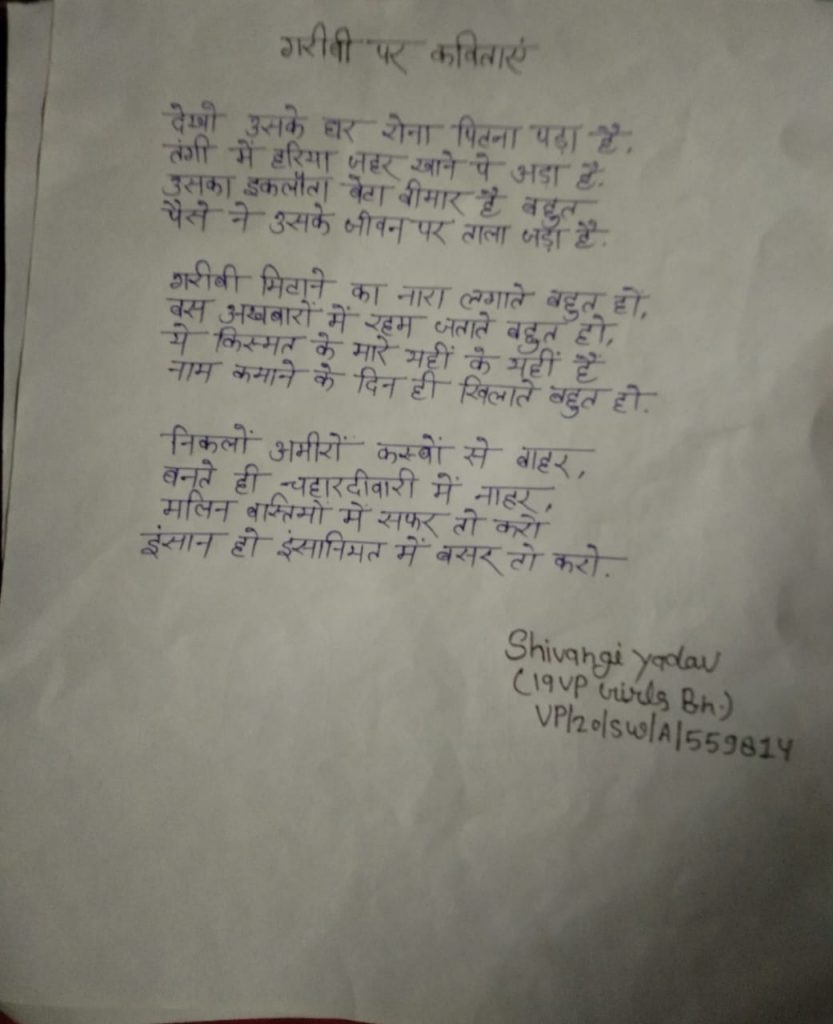 गरीबी पर कविताएं
देखो उसके घर रोना पिटना पड़ा है,
तंगी में हरिया जहर खाने पे अड़ा है.
उसका इकलौता बेटा बीमार है बहुत
पैसे ने उसके जीवन पर ताला जड़ा है.
गरीबी मिटाने का नारा लगाते बहुत हो,
बस अखबारों में रहम जताते बहुत हो,
ये किस्मत के मारे यहीं के यहीं हैं
नाम कमाने के दिन ही खिलाते बहुत हो.
निकलों अमीरों कस्बों से बाहर,
बनते ही चहारदीवारी में नाहर,
मलिन बस्तियों में सफर तो करो
इंसान हो इंसानियत में बसर तो करो.
Shivangi yadav
(19 UP Girls Bn.)
UP/20/SW/A/559814